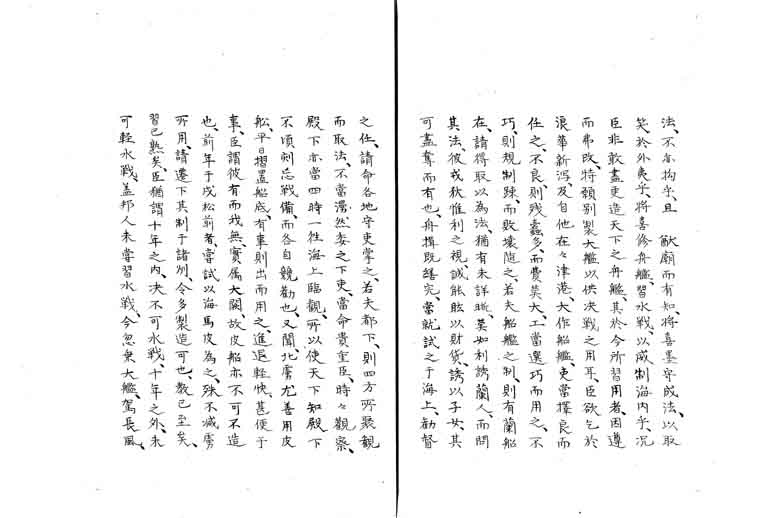 法、不亦拘乎、且　猷廟而有知、將喜墨守成法、以取
笑於外夷乎、將喜修舟艦、習水戦、以威制海内乎、況
臣非敢盡更造天下之舟艦、其於今所習用者、因遵
而弗改、特願別製大艦以供决戦之用耳、臣欲乞於
浪華新潟及自他在々津港、大作船艦、吏當擇良而
任之、不良、則残蠧多、而費莫大、工當選巧而用之、不
巧、則規制踈、而敗壊随之、若夫船艦之制、則有蘭船
在、請得取以為法、猶有未詳晰、莫如利誘蘭人、而問
其法、彼戎狄惟利之視、誠能啖以財貨、誘以子女、其
可盡奪而有也、舟揖既繕完、當就試之于海上、勧督
之任、請命各地守吏掌之、若夫都下、則四方所聚觀
而取法、不當漫然委之下吏、當命貴重臣、時々觀察、
殿下亦當四時一徃海上臨觀、所以使天下知殿下
不頃刻忘戦備、而各自競勧也、又聞、北虜尤善用皮
舩、平日摺置船底、有事則出而用之、進退軽快、甚便于
事、臣謂彼有而我無、實属大闕、故皮船亦不可不造
也、前年于戌松前者、嘗試以海馬皮為之、殊不减虜
所用、請遷下其制于諸州、令多製造可也、教已至矣、
習已熟矣、臣猶謂十年之内、决不可水戦、十年之外、未
可軽水戦、盖邦人未嘗習水戦、今忽乗大艦、駕長風、